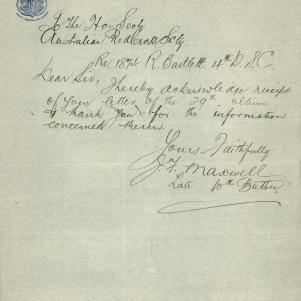 To the Hon Secty
Australian Red Cross Scty
Re 1874 R. Bartlett 4th D.S.C.
Dear Sir, I hereby acknowledge receipt
of your letter of the 29th ultimo
& thank you for the information
concerned therein.
Yours Faithfully
J. F. Maxwell
Late 10th Battn.